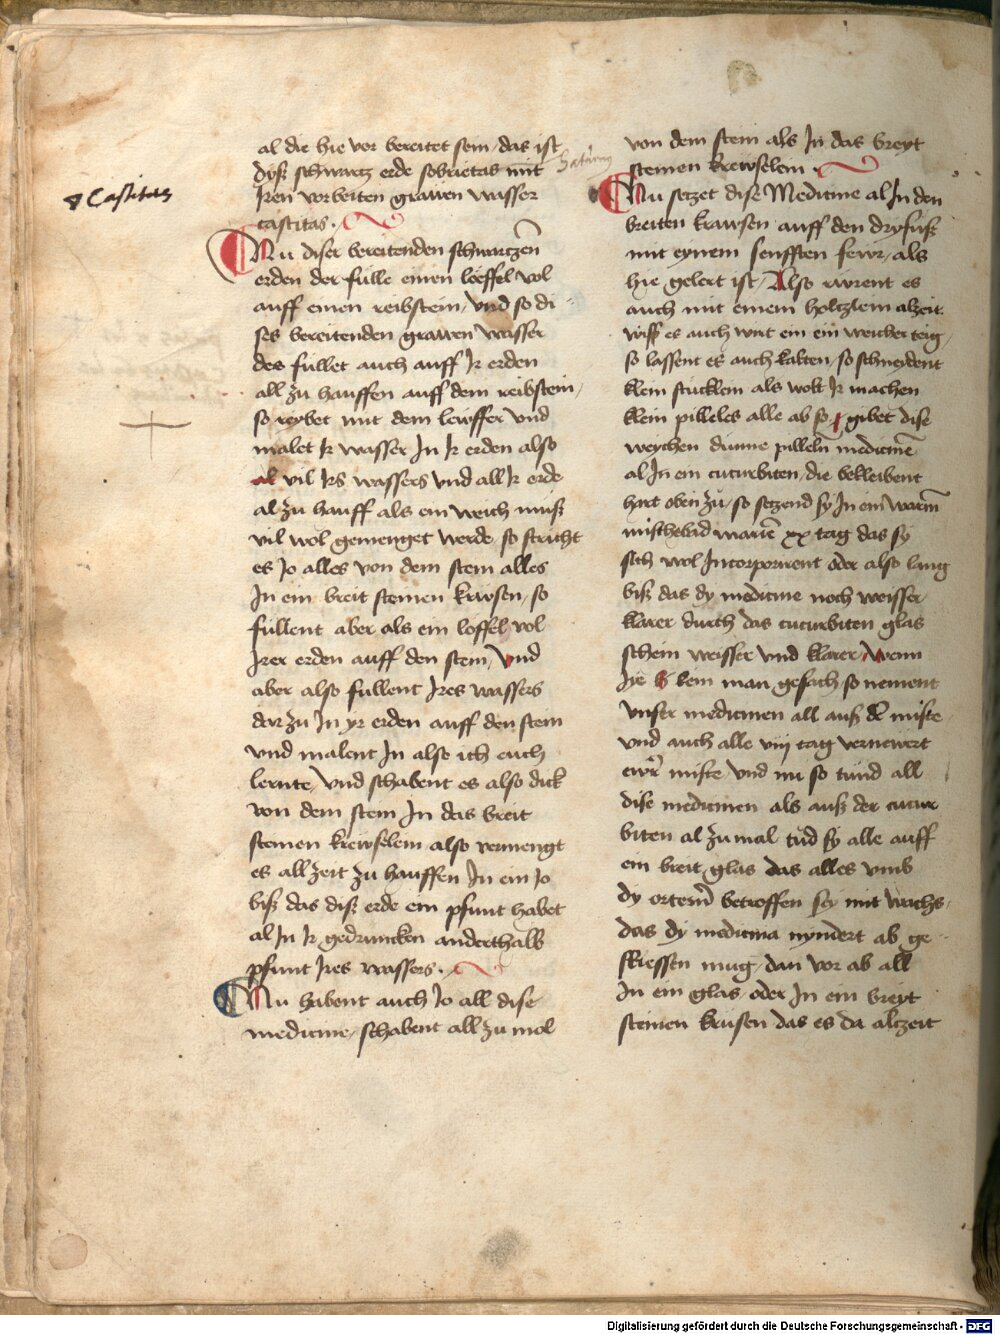 al die hie vor bereitet sein das ist
dyß schwartz erde sobrietas mit
Iren vorbeiten grawen wasser
castitas.
Castitas
Nu diser bereitenden schwartzen
erden der fülle einen loeffel vol
auff einen reibstein, Vnd so di
ses bereitenden grawen wasser
des füllet auch auff Ir erden
all zu hauffen auff dem reibstein,
so reybet mit dem lewffer Vnd
malet Ir wasser In Ir erden also
al vil Irs wassers Vnd all Ir erde
al zu hauff als ein weich muß
vil wol gemenget werde so stricht
es Io alles von dem stein alles
In ein breit steinen krawsen, so
füllent aber als ein loffel vol
Irer erden auff den stein, Vnd
aber also füllent Ires wassers
dar zu In yr erden auff den stein
vnd malent In also ich euch
lernte, Vnd schabent es also dick
von dem stein In das breit
steinen krewselein also vermengt
es all zeit zu hauffen In ein Io
biß das diß erde ein pfunt habet
al In Ir gedruncken anderthalb
pfunt Ires wassers.
Nu habent auch Io all dise
medicine, schabent all zu mol
von dem stein als In das breyt
steinen krewselein.
Nu setzet dise Medicine al In den
breiten krawsen auff den dryfuß
mit eynem senfften fewr, als
hie gelert ist, Also rürent es
auch mit einem holtzlein alzeit
biß es auch wirt ein ein weicher teig,
so lassent es auch kalten, so schneydent
klein stucklein als wolt Ir machen
klein pilleles alle ab so gibet dise
weychen dünne pillelin medicine
al In ein cucurbiten, die belleibent
hart oben zu, so setzend sy In ein warm
mistbebad warme xx tag das sy
sich wol Incorporirent oder also lang
biß das dy medicine noch weisser
klarer durch das cucurbiten glas
schein weisser Vnd klarer, Wenn
kein man gesach so nement
Vnser medicinen all auß der miste
Vnd auch alle viij tag vernewert
ewr miste Vnd nu so tund all
dise medicinen als auß der cucur
biten al zu mal tud sy alle auff
ein breit glas das alles vmb
dy ortern betroffen sey mit wachs,
das dy medicina nyndert ab ge
fliessen mug, dan vor ab all
In ein glas oder In ein breyt
steinen krusen das es da alzeit
Digitalisierung gefördert durch die Deutsche Forschungsgemeinschaft - DFG